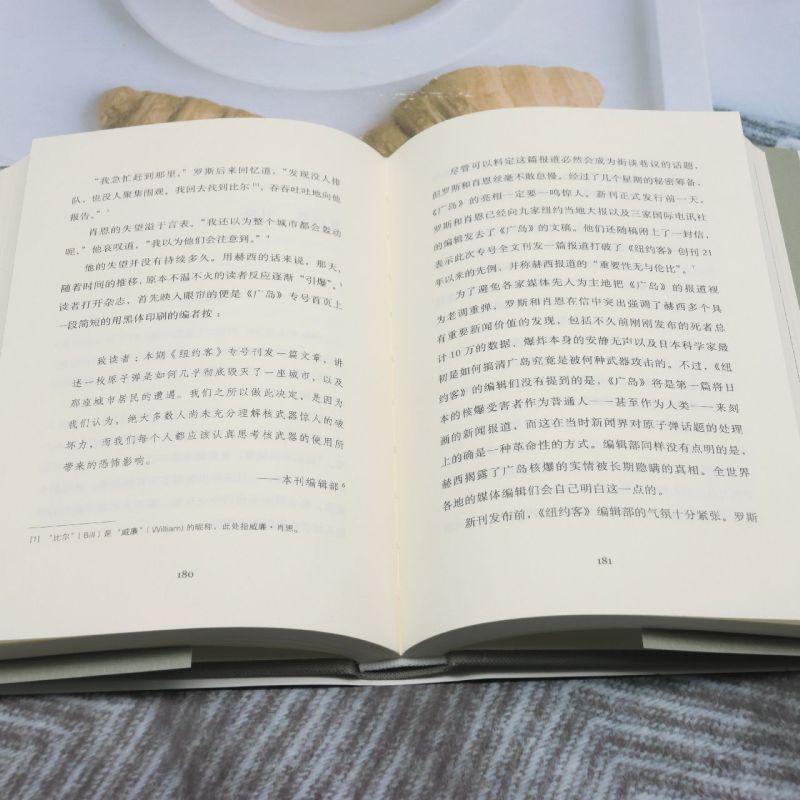 “我急忙赶到那里，”罗斯后来回忆道，“发现没人排
队，也没人聚集围观。我回去找到比尔[1]，吞吞吐吐地向他
报告。”³
肖恩的失望溢于言表。“我还以为整个城市都会轰动
呢，”他哀叹道，“我以为他们会注意到。”⁴
他的失望并没有持续多久。用赫西的话来说，那天，
随着时间的推移，原本不温不火的读者反应逐渐“引爆”。⁵
读者打开杂志，首先映入眼帘的便是《广岛》专号首页上
一段简短的用黑体印刷的编者按：
致读者：本期《纽约客》专号刊发一篇文章，讲
述一枚原子弹是如何几乎彻底毁灭了一座城市，以及
那座城市居民的遭遇。我们之所以做此决定，是因为
我们认为，绝大多数人尚未充分理解核武器惊人的破
坏力，而我们每个人都应该认真思考核武器的使用所
带来的恐怖影响。
——本刊编辑部⁶
[1] “比尔”（Bill）是“威廉”（William）的昵称，此处指威廉·肖恩。
180
尽管可以料定这篇报道必然会成为街谈巷议的话题，
但罗斯和肖恩丝毫不敢怠慢。经过了几个星期的秘密筹备，
《广岛》的亮相一定要一鸣惊人。新刊正式发行前一天，
罗斯和肖恩已经向九家纽约当地大报以及三家国际电讯社
的编辑发去了《广岛》的文稿。他们还随稿附上了一封信，
表示此次专号全文刊发一篇报道打破了《纽约客》创刊 21
年以来的先例，并称赫西报道的“重要性无与伦比”。⁷
为了避免各家媒体先入为主地把《广岛》的报道视
为老调重弹，罗斯和肖恩在信中突出强调了赫西多个具
有重要新闻价值的发现，包括不久前刚刚发布的死者总
计 10 万的数据，爆炸本身的安静无声以及日本科学家最
初是如何搞清广岛究竟是被何种武器攻击的。不过，《纽
约客》的编辑们没有提到的是，《广岛》将是第一篇将日
本的核爆受害者作为普通人——甚至作为人类——来刻
画的新闻报道，而这在当时新闻界对原子弹话题的处理
上的确是一种革命性的方式。编辑部同样没有点明的是，
赫西揭露了广岛核爆的实情被长期隐瞒的真相。全世界
各地的媒体编辑们会自己明白这一点的。
新刊发布前，《纽约客》编辑部的气氛十分紧张。罗斯
181